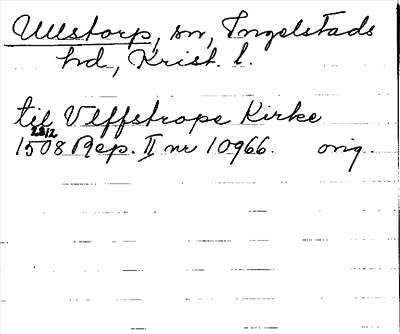 Ullstorp, sn, Ingelstads
hd, Krist. l.
til Vlffstrope Kirke
1508 28/2 Rep. II nr 10966. orig.